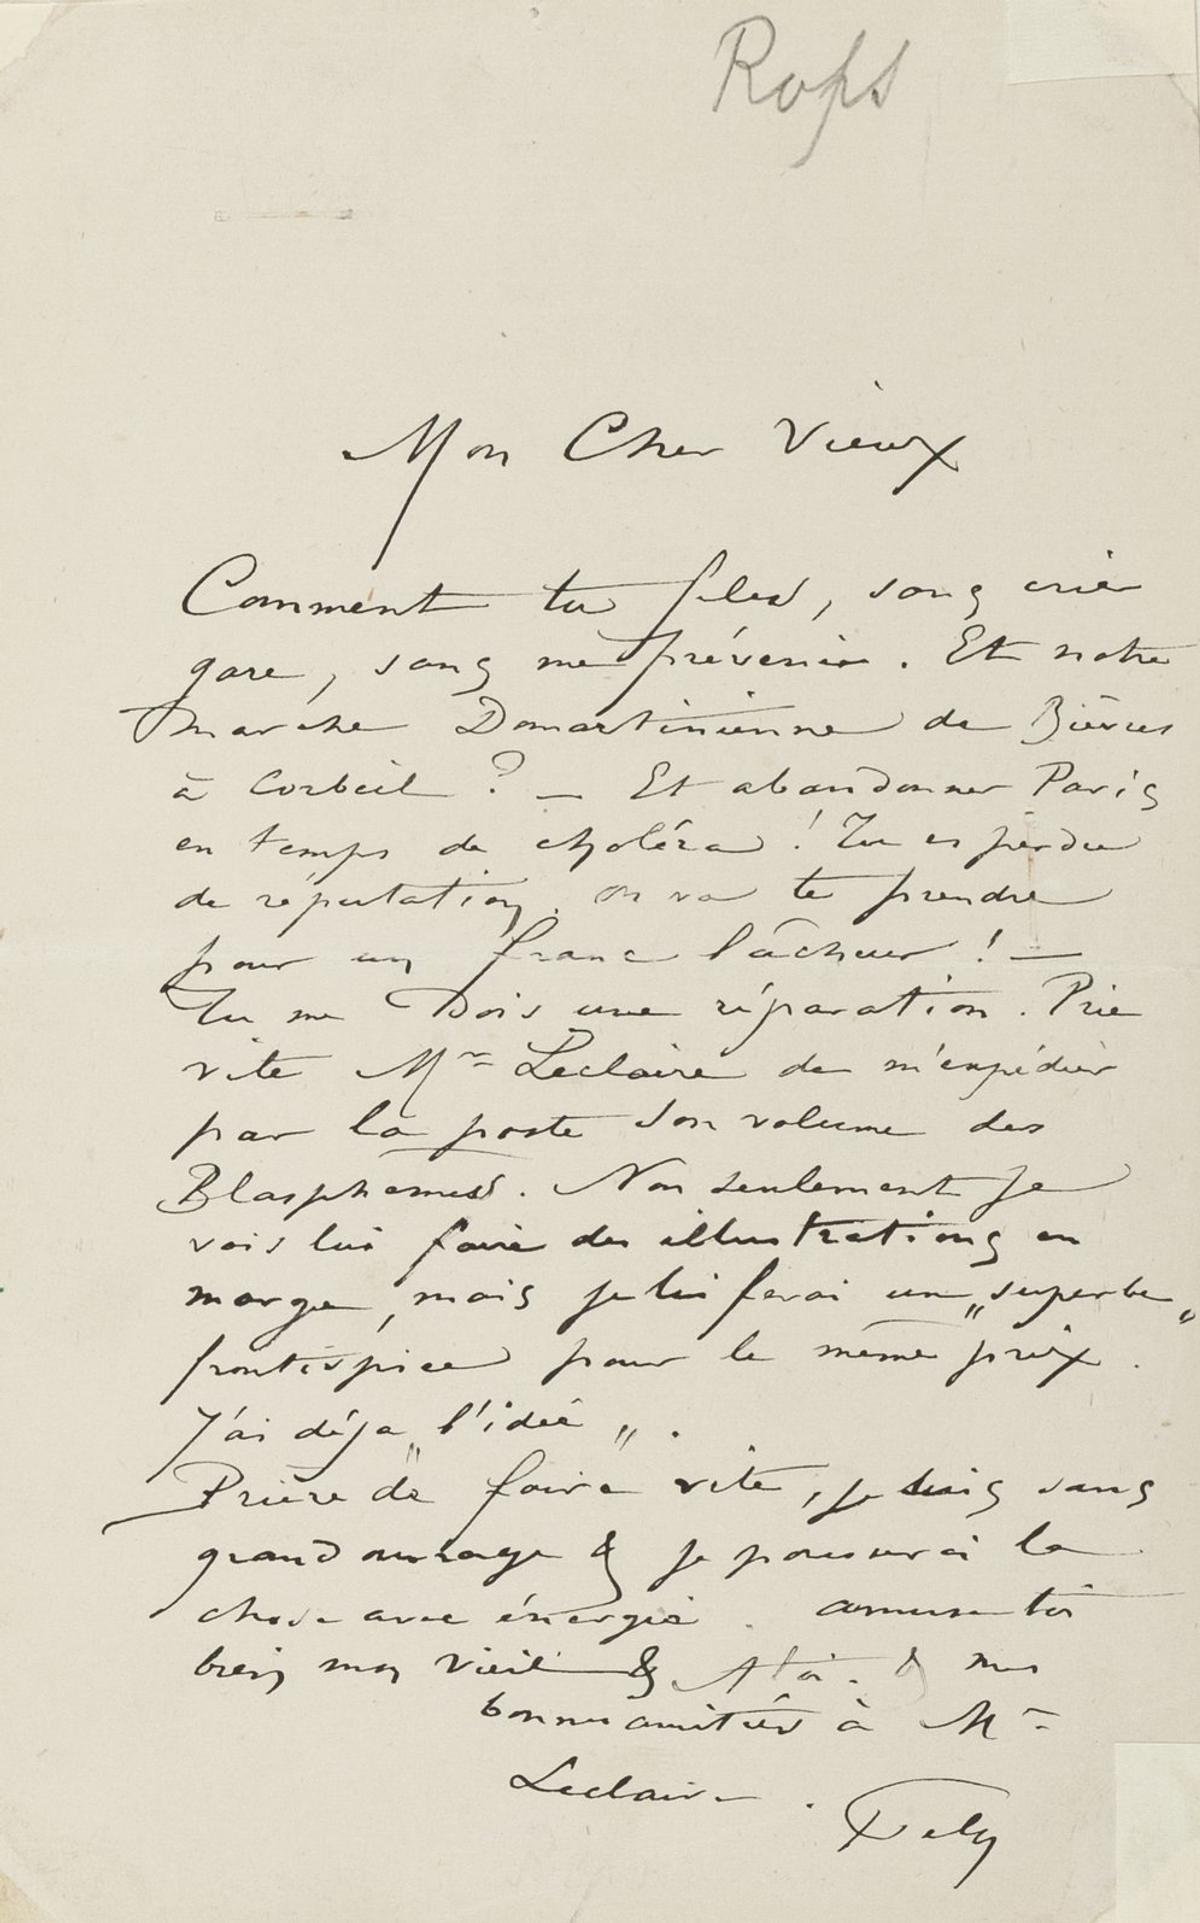 Rops
Mon Cher Vieux
Comment tu files, sans crier
gare, sans me prévenir. Et notre
marche Domartinienne de Bièvres
à Corbeil ? — Et abandonner Paris
en temps de choléra ! Tu es perdu
de réputation. on va te prendre
pour un franc lâcheur ! —
Tu me Dois une réparation. Prie
vite Mr Leclaire de m'expédier
par la poste son volume des
Blasphemes. Non seulement je
vais lui faire des illustrations en
marge, mais je lui ferai un „superbe„
frontispice pour le même prix.
J'ai déja „l'idée„.
Prière de faire vite, je suis sans
grand ouvrage & je pousserai la
chose avec énergie. amuse toi
bien mon Vieil & A toi. & mes
bonnes amitiés à Mr
Leclaire.
Fely